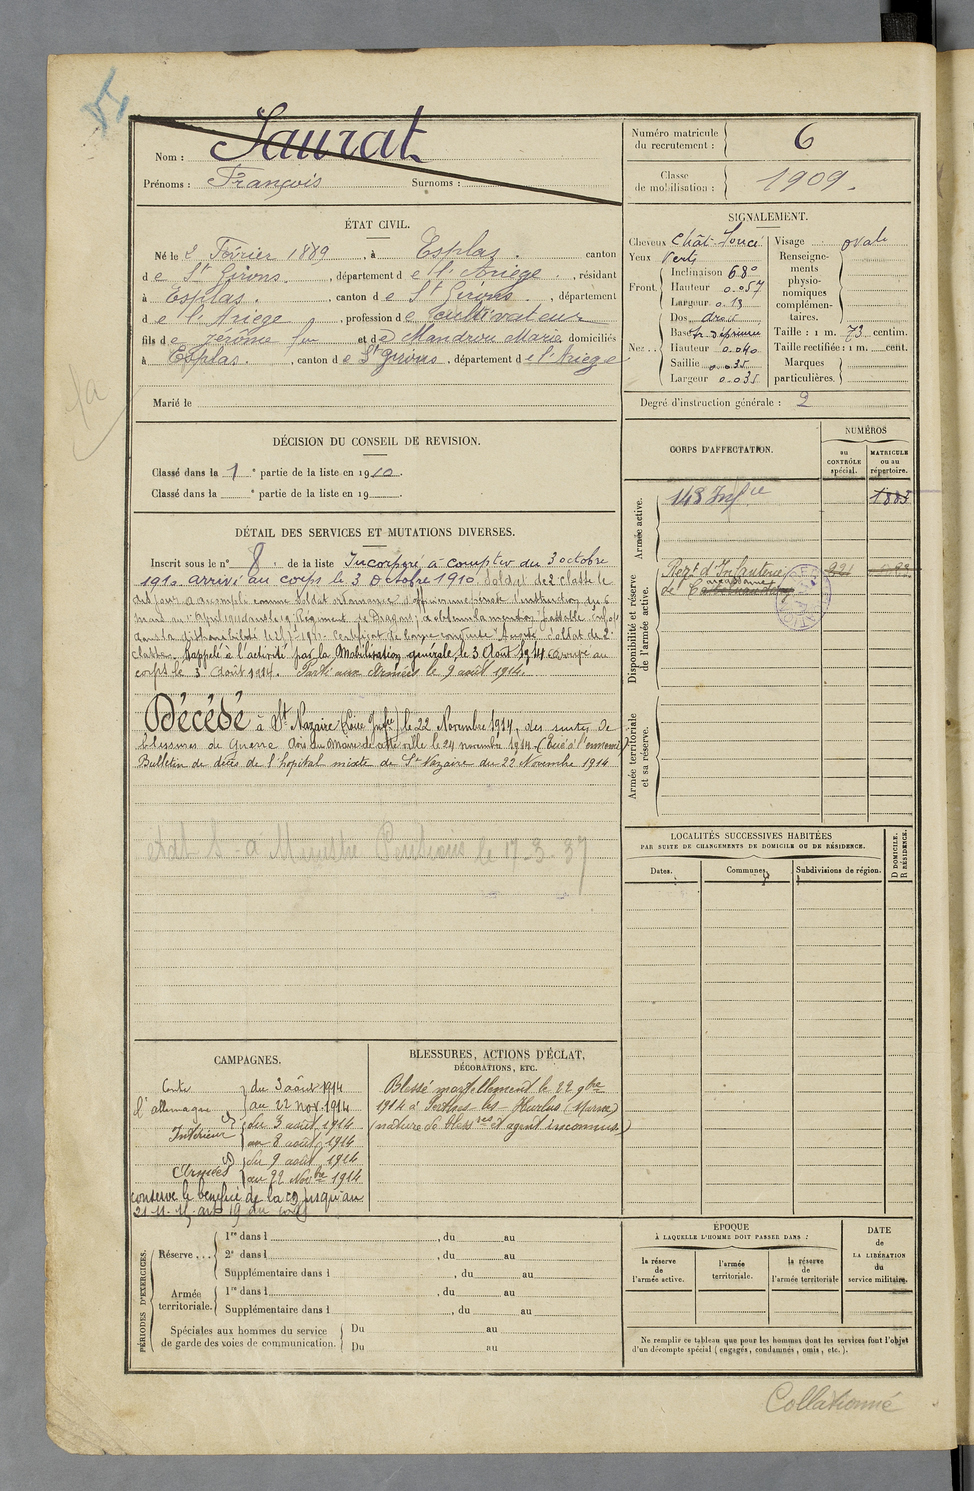 Nom : Saurat
Prénoms : François Surnoms :
Numéro matricule du recrutement : 6
Classe de mobilisation : 1909.
ÉTAT CIVIL.
Né le 2 Février 1889, à Esplas. canton
d e St Girons. , département d e l'Ariège. , résidant
à Esplas. , canton d e St Girons , département
d e l'Ariège , profession d e cultivateur
fils d e Jérôme feu et d e Mandrou Marie domiciliés
à Esplas. , canton d e St Girons , département d e l'Ariège
Marié le
SIGNALEMENT.
Cheveux Chât. foncé
Yeux Verts
Front. Inclinaison 680
Hauteur 0.057
Largeur 0.13
Nez . . Dos droit
Base
Hauteur 0.040
Saillie 0.035
Largeur 0.035
Visage ovale
Renseignements physionomiques complémentaires.
Taille : 1 m. 73 centim.
Taille rectifiée : 1 m. cent.
Marques particulières.
Degré d'instruction générale : 2
DÉCISION DU CONSEIL DE REVISION.
Classé dans la 1 e partie de la liste en 1910.
Classé dans la e partie de la liste en 19
CORPS D'AFFECTATION.
NUMÉROS
au CONTRÔLE spécial.
MATRICULE ou au répertoire.
Armée active.
143 Infie 1883
Disponibilité et réserve de l'armée active.
Regt d'Infanterie
de
Armée territoriale et sa réserve.
DÉTAIL DES SERVICES ET MUTATIONS DIVERSES.
Inscrit sous le n° 8. de la liste Incorporé à compter du 3 octobre
1910 arrivé au corps le 3 Octobre 1910. Soldat de 2e classe le
dit jour a accompli comme soldat ordonnance d'officier une période d'instruction de 6
mois au 19 Régiment de Dragons, a obtenu la mention
dans la disponibilité le Certificat de bonne conduite "Accordé" Soldat de 2e
classe. Rappelé à l'activité par la Mobilisation générale le 3 Août 1914. Arrivé au
corps le 3 Août 1914. Parti aux Armées le 9 août 1914.
Décédé à St Nazaire (Loire Infre) le 22 Novembre 1914, des suites de
blessures de Guerre Avis du Maire de cette ville le 24 novembre 1914. (tué à l'ennemi)
Bulletin de décès de l'hôpital mixte de St Nazaire du 22 Novembre 1914
à Ministre Pensions le 17-3-37
LOCALITÉS SUCCESSIVES HABITÉES
PAR SUITE DE CHANGEMENTS DE DOMICILE OU DE RÉSIDENCE.
Dates. Communes. Subdivisions de région. D DOMICILE. R RÉSIDENCE.
CAMPAGNES.
Contre du 3 août 1914
l'allemagne au 22 nov. 1914
Intérieur du 3 août 1914
au 8 août 1914
Armées du 9 août 1914
au 22 Novbre 1914
conserve le bénéfice de la jusqu'au
BLESSURES, ACTIONS D'ÉCLAT,
DÉCORATIONS, ETC.
Blessé mortellement le 22 9bre
1914 à Perthes les Hurlus (Marne)
(nature de blessres et agent inconnus)
PÉRIODES D'EXERCICES.
Réserve . . . 1re dans l , du au
2e dans l , du au
Supplémentaire dans l , du au
Armée territoriale. 1re dans l , du au
Supplémentaire dans l , du au
Spéciales aux hommes du service de garde des voies de communication. Du au
Du au
ÉPOQUE
À LAQUELLE L'HOMME DOIT PASSER DANS :
la réserve de l'armée active.
l'armée territoriale.
la réserve de l'armée territoriale
DATE de LA LIBÉRATION du service militaire.
Ne remplir ce tableau que pour les hommes dont les services font l'objet
d'un décompte spécial (engagés, condamnés, omis, etc.).
Collationné